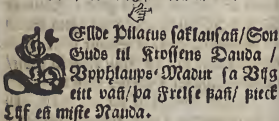 SEllde Pilatus saklausañ/Son
Guds til Krossens Dauda /
Vpphlaups-Madur sa Vijs
eitt vañ/þa Frelse þañ/ þieck
Lijf eñ miste Nauda.